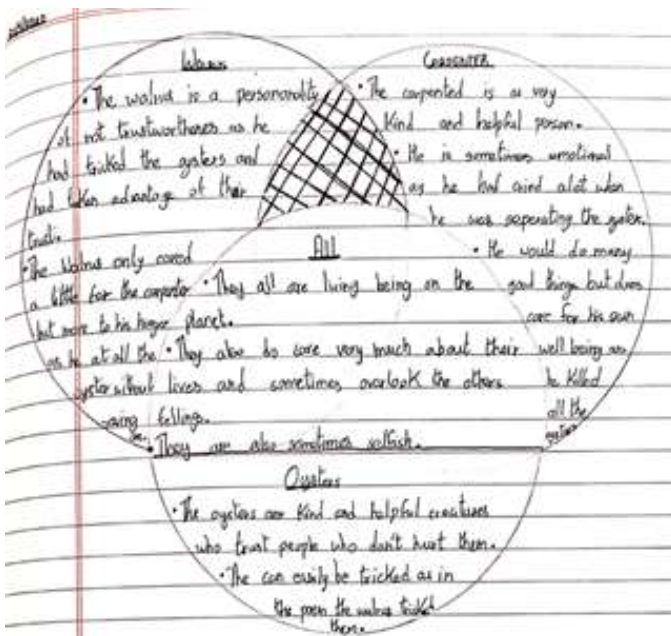 Walrus
• The walrus is a personality
of not trustworthness as he
had tricked the oysters and
had taken advantage of their
trust.
• The Walrus only cared
a little for the carpenter
but more to his hunger
as he at all the
oyster without
saving
CARPENTER
• The carpented is a very
kind and helpful person.
• He is sometimes emotional
as he had cried alot when
he was seperating the oyster.
• He would do many
good things but does
care for his own
well being as
he killed
all the
oysters
All
• They all are living being on the
planet.
• They also do care very much about their
lives and sometimes overlook the others
fellings.
• They are also sometimes selfish.
Oysters
• The oysters are kind and helpful creatures
who trust people who don't hurt them.
• The can easily be tricked as in
the poem the walrus tricked
them.